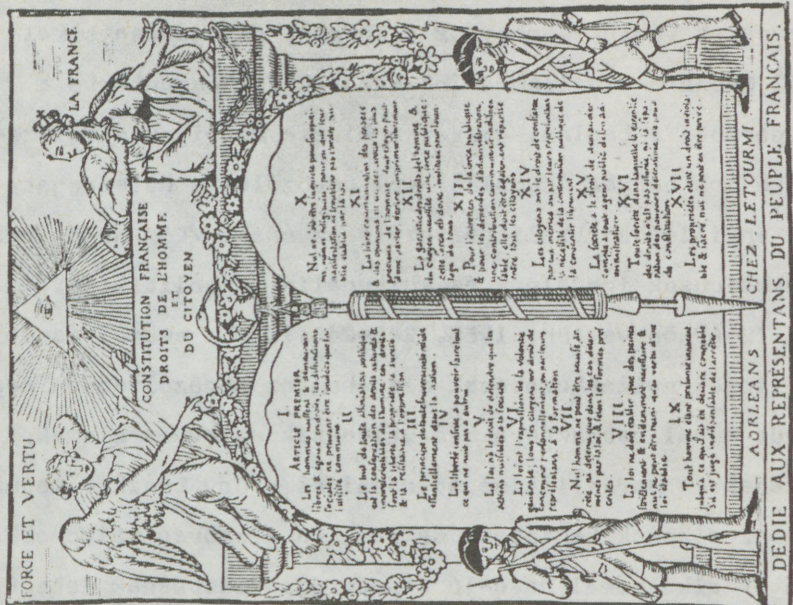 FORCE ET VERTU
LA FRANCE
CONSTITUTION FRANÇAISE
DROITS DE L'HOMME
ET
DU CITOYEN
I
ARTICLE PREMIER
Les hommes naissent & demeurent
libres & égaux en droits, les distinctions
sociales ne peuvent être fondées que sur
l'utilité commune
II
Le but de toute association politique
est la conservation des droits naturels &
imprescriptibles de l'homme ces droits
sont la liberté la propriété la sureté
& la résistance à l'oppression
III
Le principe de toute souveraineté réside
essentiellement dans la nation.
IV
La liberté consiste à pouvoir faire tout
ce qui ne nuit pas à autrui
V
La loi n'a le droit de défendre que les
actions nuisibles à la société
VI
La loi est l'expression de la volonté
générale, tous les citoyens ont droit de
concourir personnellement ou par leurs
représentans à sa formation
VII
Nul homme ne peut être accusé ar-
rêté ni détenu que dans les cas déter-
minés par la loi, & selon les formes pres
crites
VIII
La loi ne doit établir que des peines
strictement & évidemment nécessaires &
nul ne peut être puni qu'en vertu d'une
loi établie
IX
Tout homme étant présumé innocent
jusqu'à ce qu'il ait été déclaré coupable
s'il est jugé indispensable de l'arrêter.
X
Nul ne doit être inquiété pour ses opi-
nions, même religieuses, pourvu que leur
manifestation ne trouble pas l'ordre pu-
blic établi par la loi.
XI
La libre communication des pensées
& des opinions est un des droits les plus
précieux de l'homme tout citoyen peut
donc parler écrire imprimer librement
XII
La garantie des droits de l'homme &
du citoyen nécessite une force publique:
cette force est donc instituée pour l'avan-
tage de tous.
XIII
Pour l'entretien de la force publique
& pour les dépenses d'administration,
une contribution commune est indispen
sable, elle doit être également répartie
entre tous les citoyens
XIV
Les citoyens ont le droit de constater
par eux mêmes ou par leurs représentans
la nécessité de la contribution publique de
la consentir librement
XV
La société a le droit de demander
compte à tout agent public de son ad-
ministration.
XVI
Toute société dans laquelle la garantie
des droits n'est pas assurée, ni la sépa-
ration des pouvoirs déterminée n'a point
de constitution
XVII
Les propriétés étant un droit inviola-
ble & sacré nul ne peut en être privé.
A ORLEANS CHEZ LETOURMI
DEDIE AUX REPRESENTANS DU PEUPLE FRANCAIS.